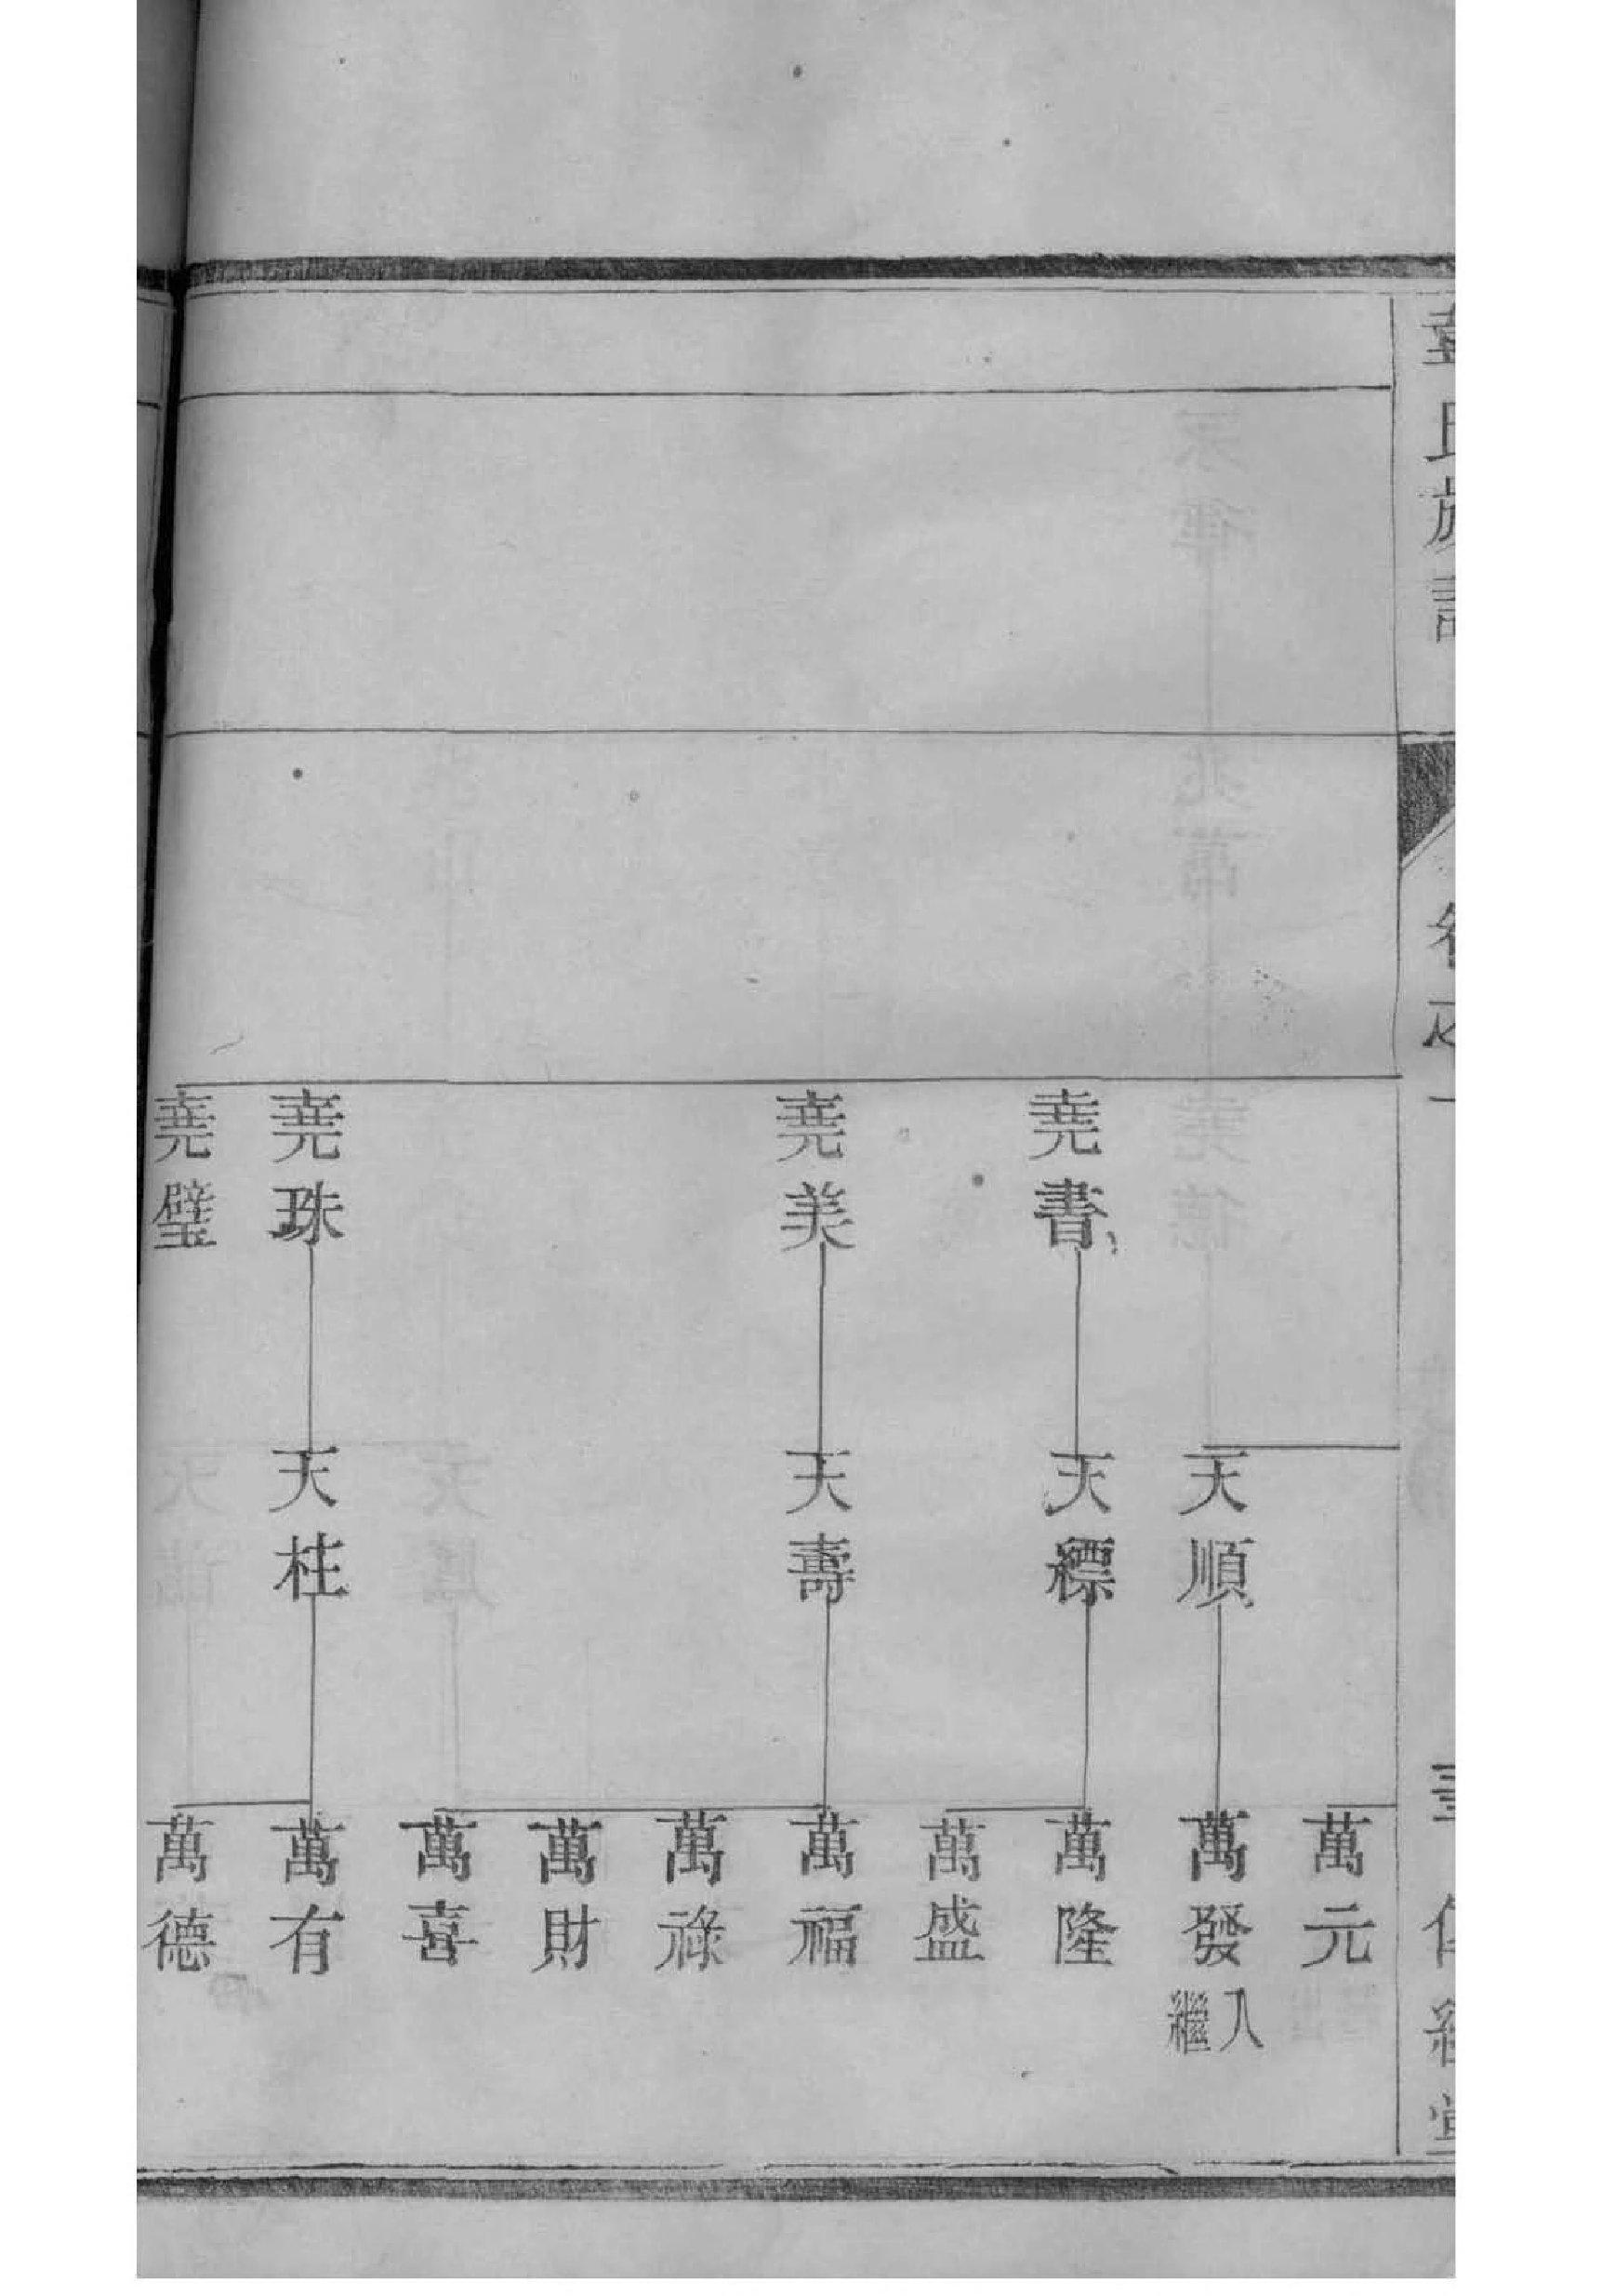 氏族譜
卷之一
堯書
堯美
堯珠
堯璧
天順
天縹
天壽
天柱
萬元
萬發
入繼
萬隆
萬盛
萬福
萬祿
萬財
萬喜
萬有
萬德